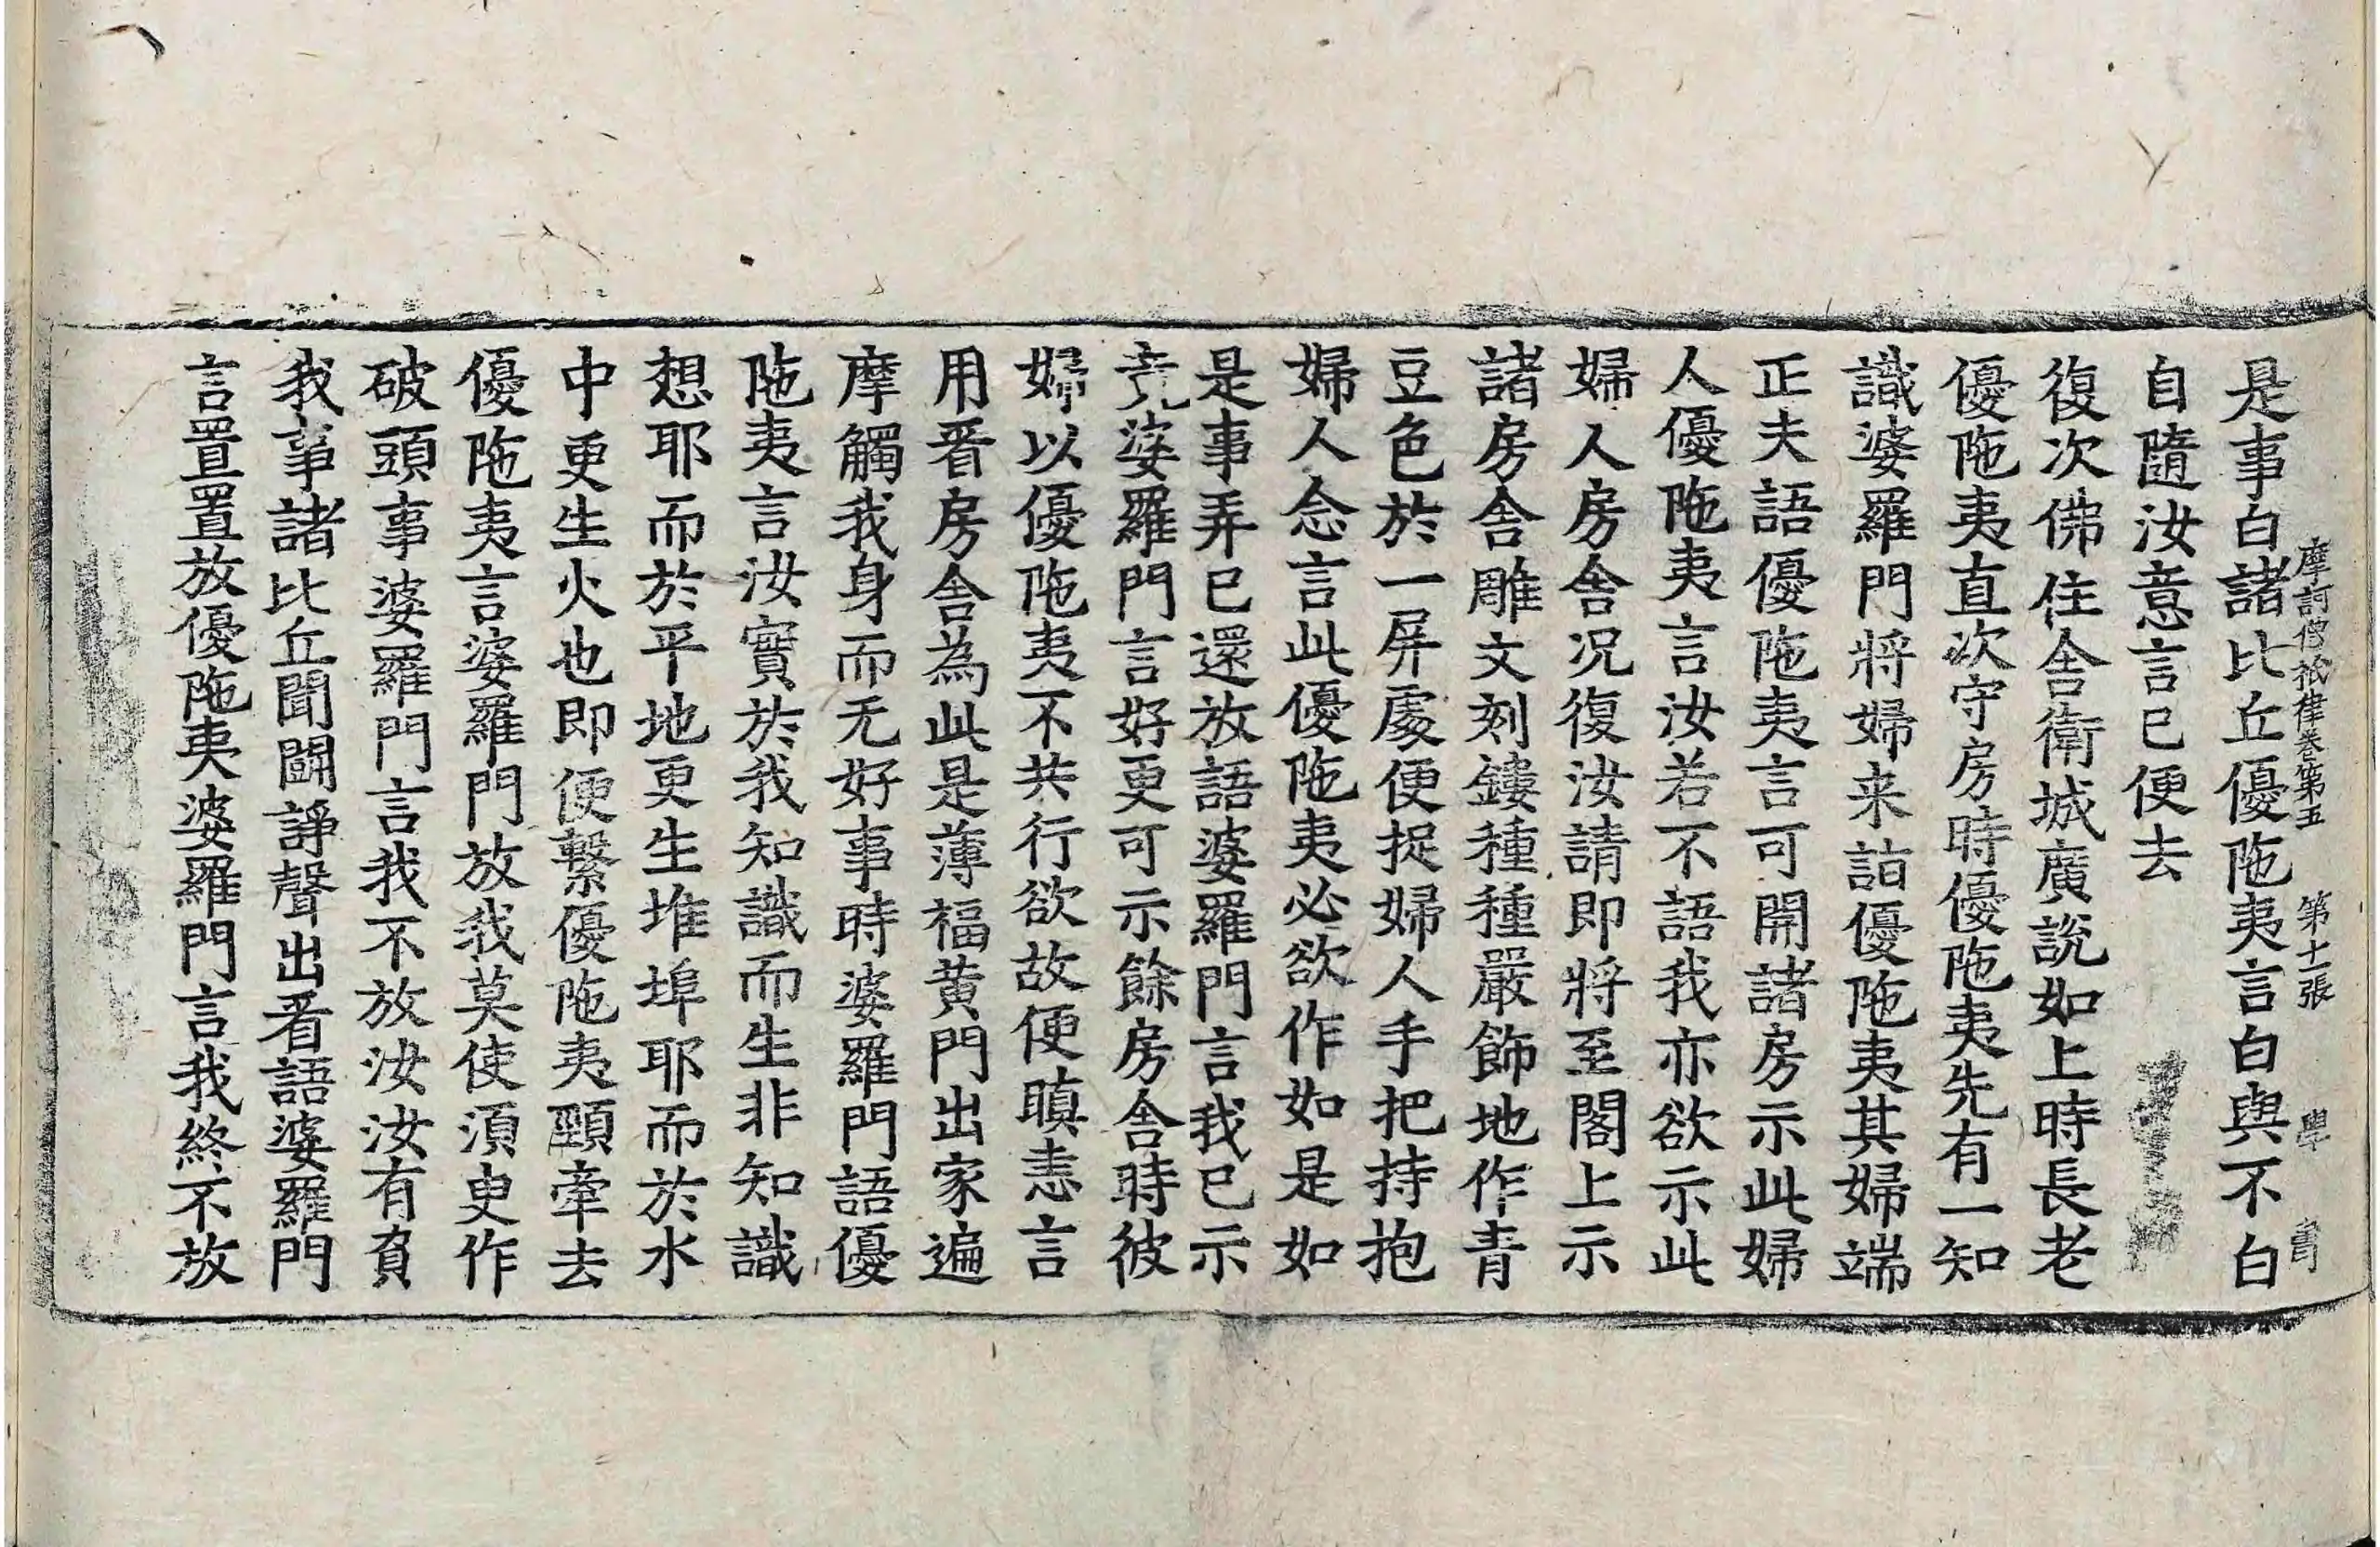 摩訶僧祇律卷第五 第十一張 學 書
是事白諸比丘優陁夷言白與不白
自隨汝意言已便去
復次佛住舍衛城廣說如上時長老
優陁夷直次守房時優陁夷先有一知
識婆羅門將婦来詣優陁夷其婦端
正夫語優陁夷言可開諸房示此婦
人優陁夷言汝若不語我亦欲示此
婦人房舍况復汝請即將至閣上示
諸房舍雕文刻鏤種種嚴飾地作青
豆色於一屏處便捉婦人手把持抱
婦人念言此優陁夷必欲作如是如
是事弄已還放語婆羅門言我已示
竟婆羅門言好更可示餘房舍時彼
婦以優陁夷不共行欲故便瞋恚言
用看房舍為此是薄福黄門出家遍
摩觸我身而无好事時婆羅門語優
陁夷言汝實於我知識而生非知識
想耶而於平地更生堆埠耶而於水
中更生火也即便繫優陁夷頸牽去
優陁夷言婆羅門放我莫使湏臾作
破頭事婆羅門言我不放汝汝有負
我事諸比丘聞鬪諍聲出看語婆羅門
言置置放優陁夷婆羅門言我終不放